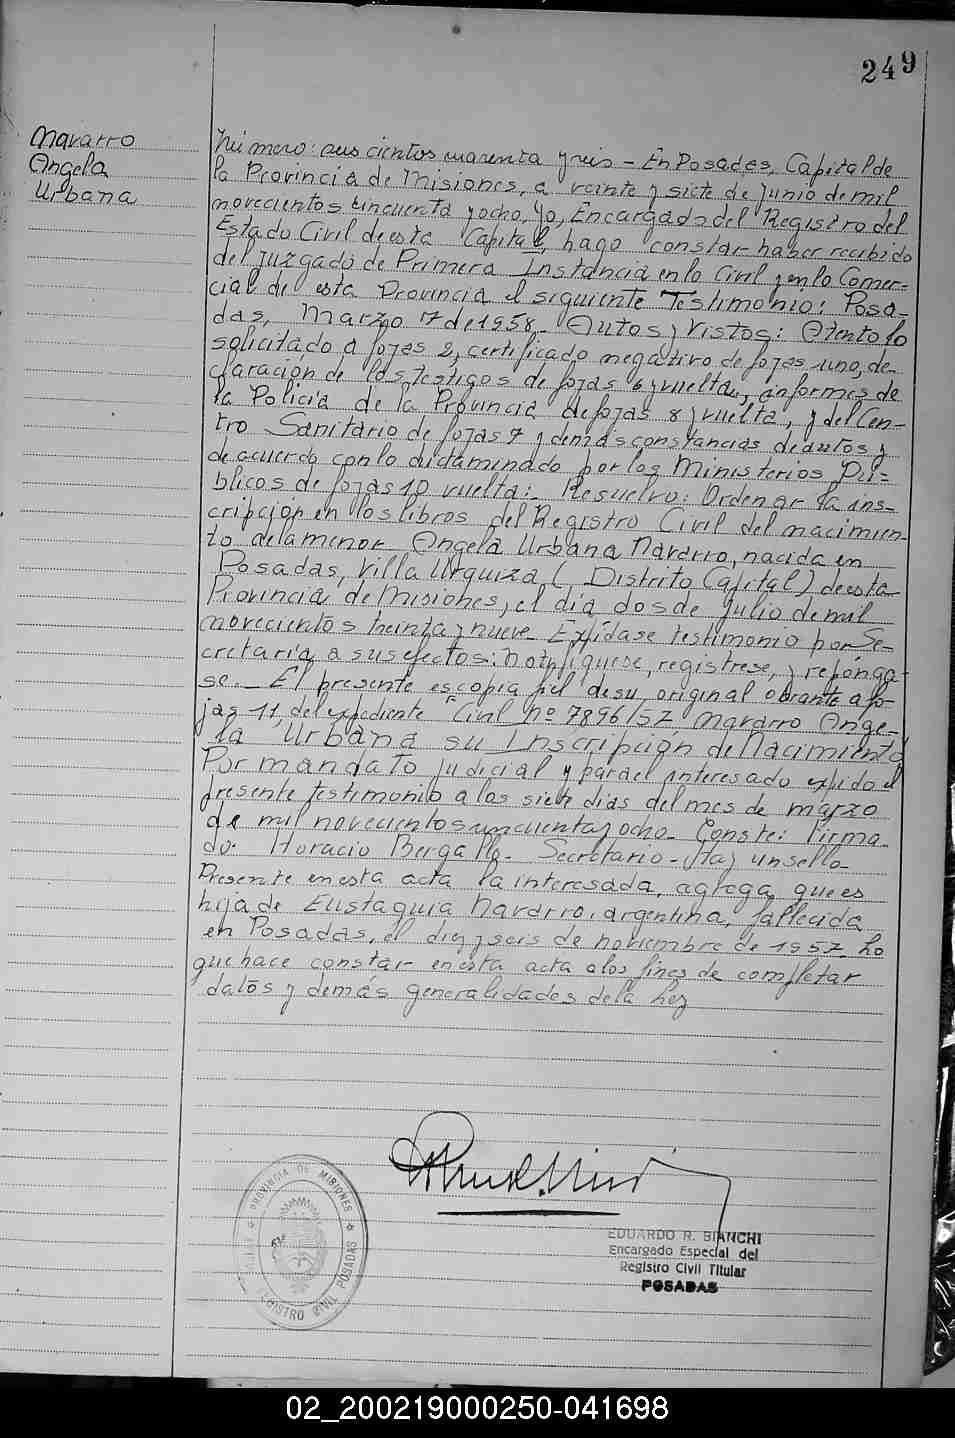 249
Navarro
Angela
Urbana
Número: seis cientos cuarenta y seis - En Posadas, Capital de
la Provincia de Misiones, a veinte y siete de Junio de mil
novecientos cincuenta y ocho, Yo, Encargado del Registro del
Estado Civil de esta Capital, hago constar haber recibido
del Juzgado de Primera Instancia en lo Civil y en lo Comer-
cial de esta Provincia el siguiente Testimonio: Posa-
das, Marzo 7 de 1958. Autos y Vistos: Atento lo
solicitado a fojas 2, certificado negativo de fojas uno, de-
claración de los testigos de fojas 6 y vuelta, informes de
la Policia de la Provincia de fojas 8 y vuelta, y del Cen-
tro Sanitario de fojas 7 y demás constancias de autos y
de acuerdo con lo dictaminado por los Ministerios Pú-
blicos de fojas 10 vuelta:- Resuelvo: Ordenar la ins-
cripción en los libros del Registro Civil del nacimien-
to de la menor Angela Urbana Navarro, nacida en
Posadas, Villa Urquiza (Distrito Capital) de esta
Provincia de Misiones, el día dos de Julio de mil
novecientos treinta y nueve. Expídase testimonio por Se-
cretaría a sus efectos: notifíquese, regístrese, y repónga-
se.- El presente es copia fiel de su original obrante a fo-
jas 11, del expediente "Civil nº 7896/57 Navarro Ange-
la Urbana su Inscripción de Nacimiento
Por mandato judicial y para el interesado expido el
presente testimonio a los siete días del mes de marzo
de mil novecientos cincuenta y ocho. Conste: Firma-
do: Horacio Bergallo. Secretario - Hay un sello-
Presente en esta acta la interesada, agrega que es
hija de Eustaquia Navarro, argentina, fallecida
en Posadas, el diez y seis de noviembre de 1957. Lo
que hace constar en esta acta a los fines de completar
datos y demás generalidades de la Ley
PROVINCIA DE MISIONES
REGISTRO CIVIL POSADAS
EDUARDO R. BIANCHI
Encargado Especial del
Registro Civil Titular
POSADAS
02_200219000250-041698